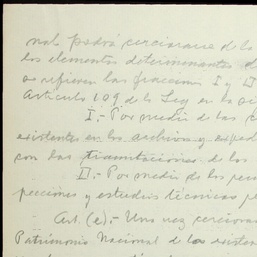 nal podrá cerciorarse de la
los elementos determinantes d
se refieren las fracciones I y II
Artículo 109 de la Ley en la
I.- Por medio de las
existentes en los archivos y exped
con las tramitaciones de los
II.- Por medio de los
pecciones y estudios técnicos
Art. (e).- Una vez cerciora
Patrimonio Nacional de la existen